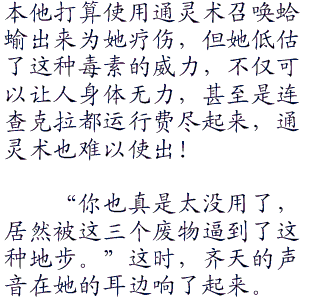 本他打算使用通灵术召唤蛤
蝓出来为她疗伤，但她低估
了这种毒素的威力，不仅可
以让人身体无力，甚至是连
查克拉都运行费尽起来，通
灵术也难以使出！
“你也真是太没用了，
居然被这三个废物逼到了这
种地步。”这时，齐天的声
音在她的耳边响了起来。